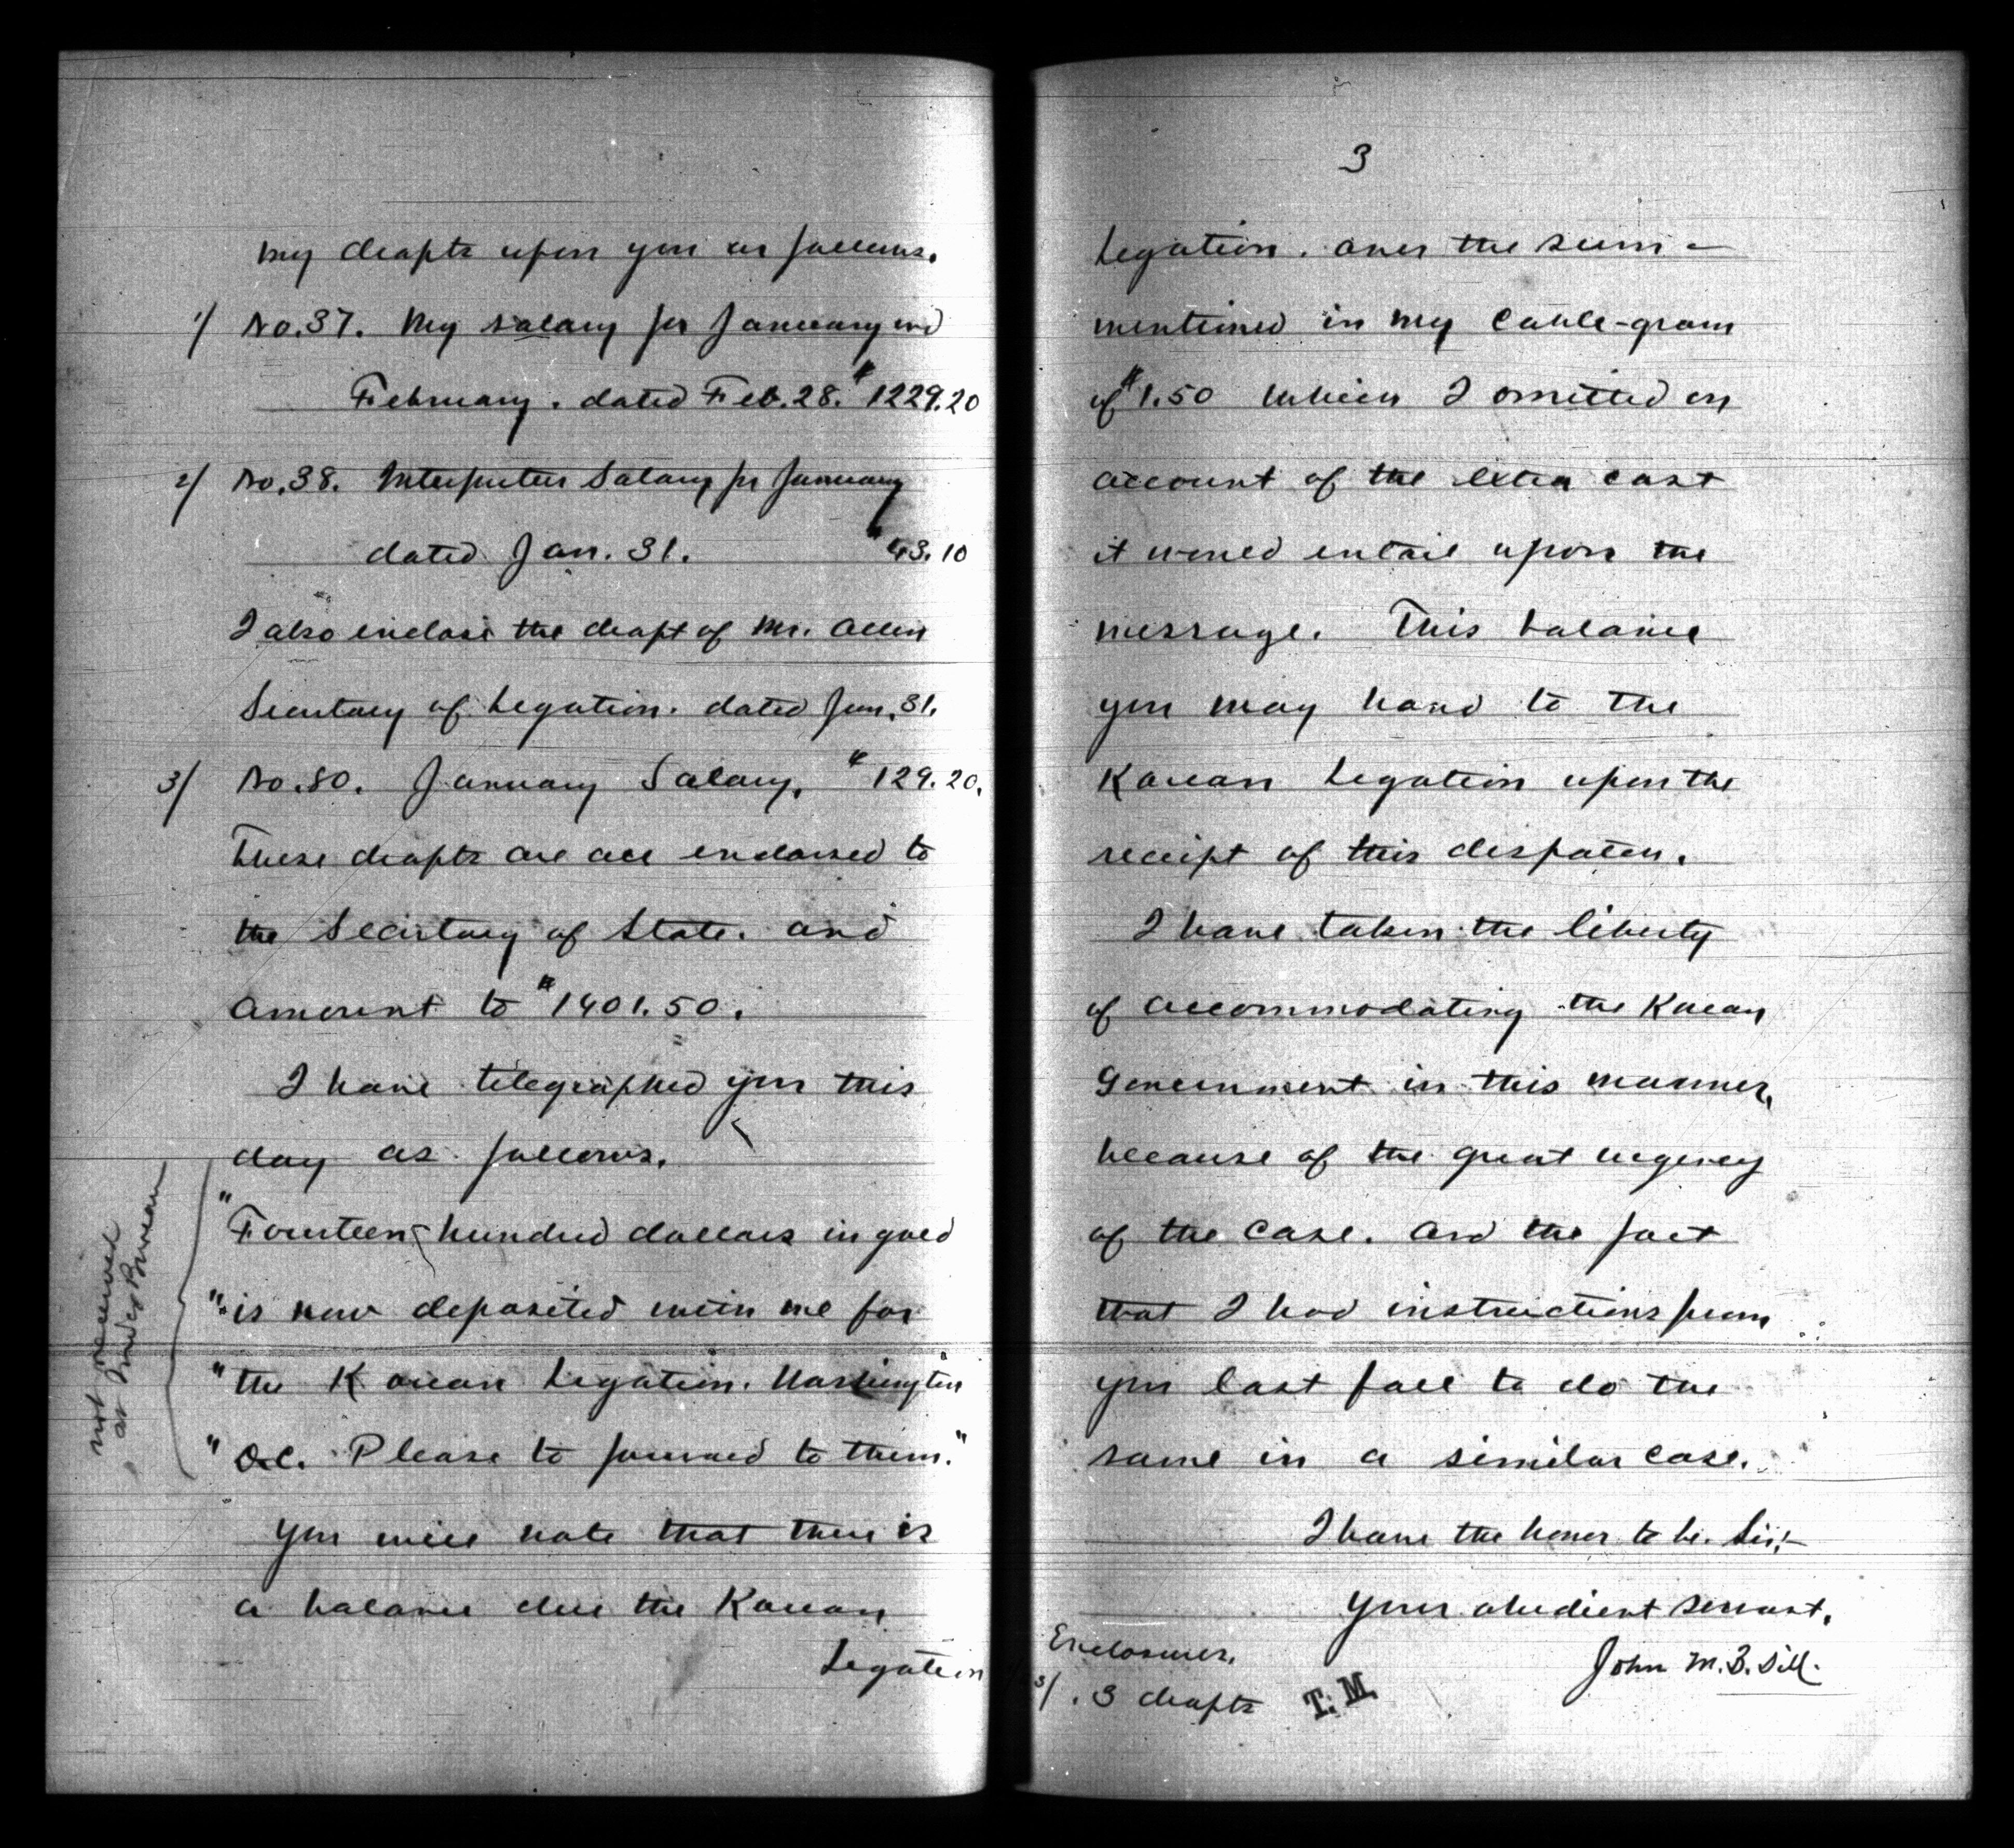 my drafts upon you as follows.
1/ No. 37. My salary for January and
February. dated Feb. 28. $1229.20
2/ No. 38. Interpreters Salary for January
dated Jan. 31. "43.10
I also enclose the draft of Mr. Allen
Secretary of Legation. dated Jan. 31.
3/ No. 80. January Salary, $129.20.
These drafts are all endorsed to
the Secretary of State. and
amount to $1401.50.
I have telegraphed you this
day as follows.
"Fourteen hundred dollars in gold
"is now deposited with me for
"the Korean Legation. Washington
"D.C. Please to forward to them."
not received
at Index Bureau
You will note that there is
a balance due the Korean
Legation
3
Legation. over the sum -
mentioned in my cable-gram
of $1.50 which I omitted on
account of the extra cost
it would entail upon the
message. This balance
you may hand to the
Korean Legation upon the
receipt of this despatch.
I have taken the liberty
of accommodating the Korean
Government in this manner,
because of the great urgency
of the case. and the fact
that I had instructions from
you last fall to do the
same in a similar case.
I have the honor to be. Sir:-
Your obedient servant,
John M. B. Sill.
Enclosures.
3/. 3 drafts
T. M.